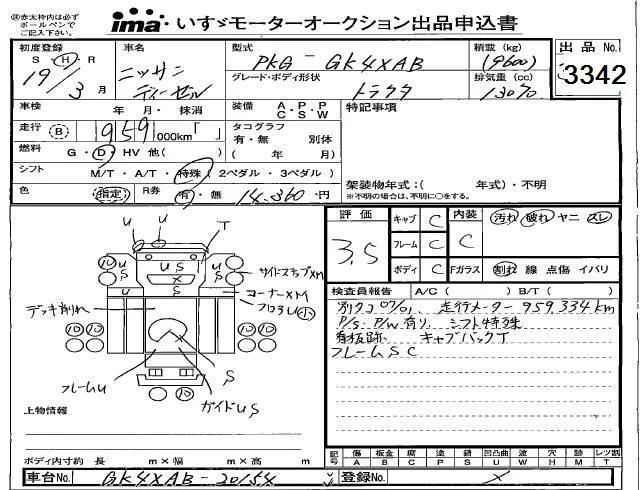 ㊟赤太枠内は必ず
ボールペンで
ご記入下さい。
ima いすゞモーターオークション出品申込書
初度登録 車名 型式 積載(kg) 出品No.
S・Ⓗ・R
19/3月
ニッサン
ディーゼル
PKG-GK4XAB
(9600)
3342
グレード・ボディ形状 排気量(cc)
トラクタ
13070
車検 年 月・抹消 装備 A・P・P
C・S・W 特記事項
走行 Ⓑ 959 000km「 」 タコグラフ
有・無 別体
燃料 G・Ⓓ・HV 他( ) ( 年 月)
シフト M/T・A/T・特殊(2ペダル・3ペダル)
架装物年式:( 年式)・不明
※不明の場合は、不明に○をする。
色 指定 R券 有・無 14,360円
評価 3.5
キャブ C 内装 C 汚れ・破れ・ヤニ・スレ
フレーム C
ボディ C Fガラス C 割れ 線 点傷 イバリ
検査員報告 A/C( ) B/T( )
走行メーター959334km
P/S P/W有り シフト特殊
看板跡 キャブバックT
フレームSC
U U T
U U S U
S X S
サイドステップXM
コーナーXM
フロアU小
デッキ削れ
⑩ ⑩ ⑩ ⑩ ⑩ ⑩
フレームU
S
ガイドUS
上物情報
ボディ内寸約 長 m×幅 m×高 m
記号 傷 板金 腐 塗 錆 凹凸曲 波 穴 跡 レツ割
A B C P S U W H M T
車台No. GK4XAB-20154 登録No.